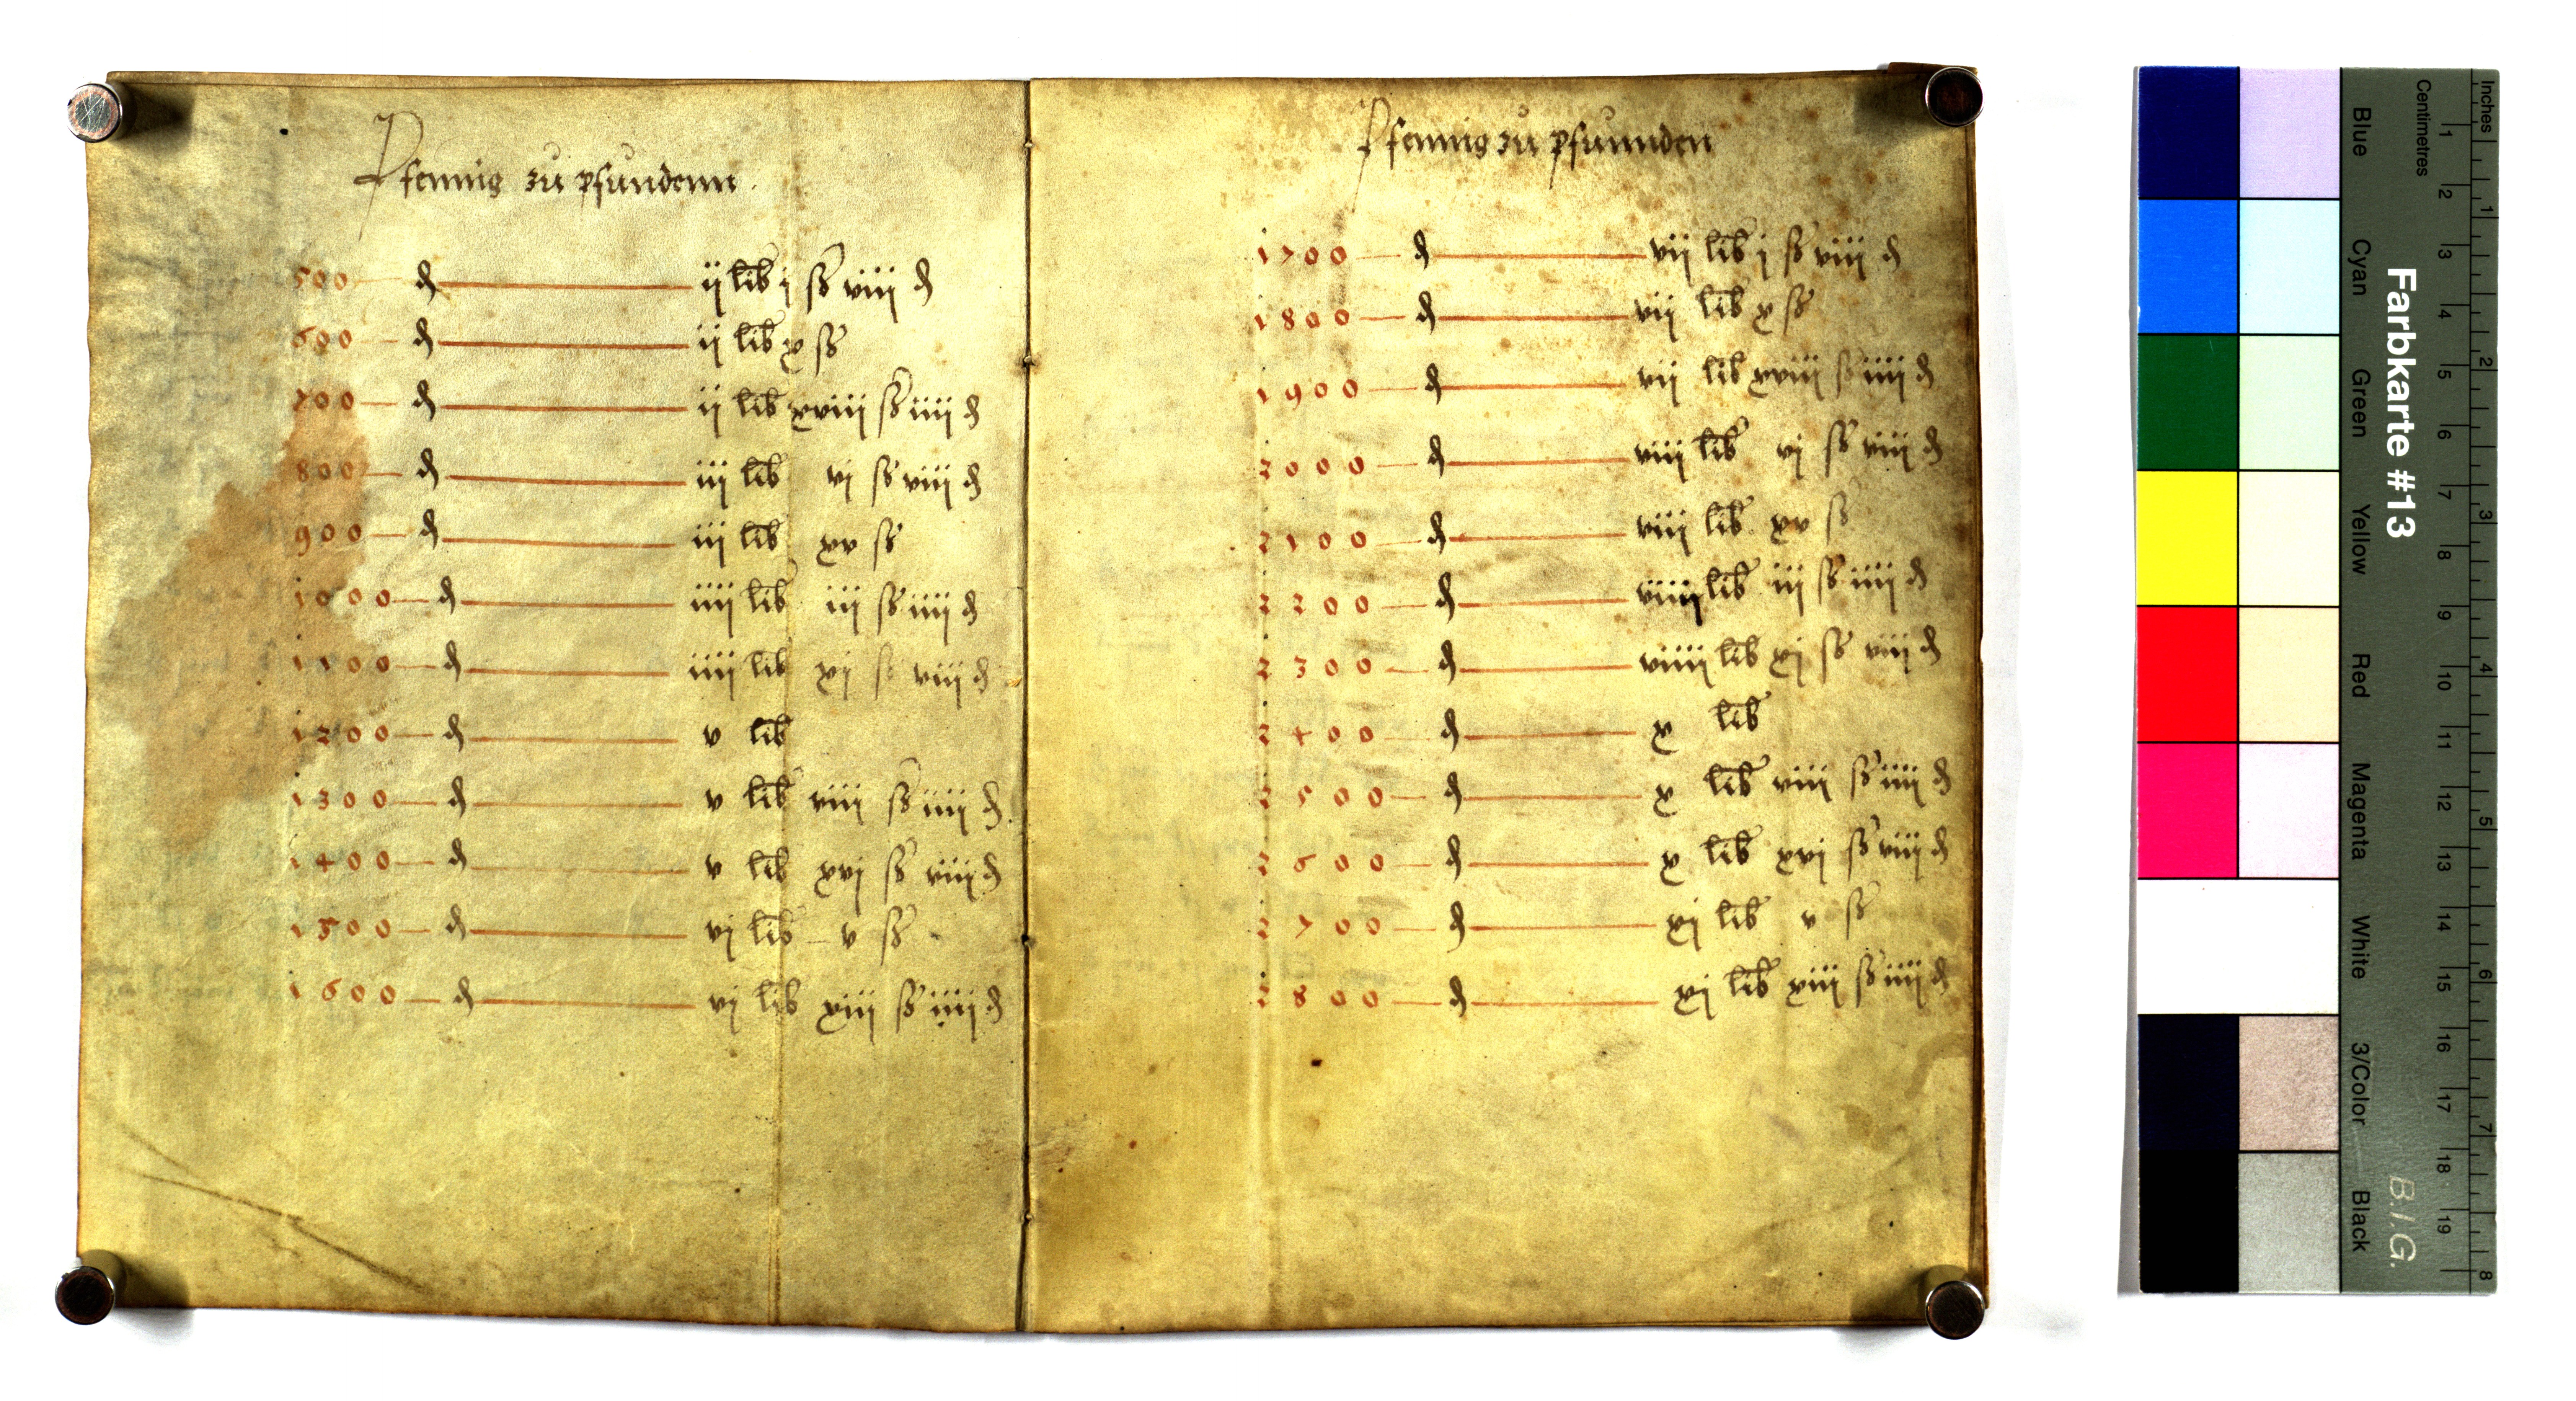 Pfennig zu pfundenn
500 ₰ ij lib j ß viij ₰
600 ₰ ij lib x ß
700 ₰ ij lib xviij ß iiij ₰
800 ₰ iij lib vj ß viij ₰
900 ₰ iij lib xv ß
1000 ₰ iiij lib iij ß iiij ₰
1100 ₰ iiij lib xj ß viij ₰
1200 ₰ v lib
1300 ₰ v lib viij ß iiij ₰
1400 ₰ v lib xvj ß viij ₰
1500 ₰ vj lib v ß
1600 ₰ vj lib xiij ß iiij ₰
Pfennig zu pfunnden
1700 ₰ vij lib j ß viij ₰
1800 ₰ vij lib x ß
1900 ₰ vij lib xviij ß iiij ₰
2000 ₰ viij lib vj ß viij ₰
2100 ₰ viij lib xv ß
2200 ₰ viiij lib iij ß iiij ₰
2300 ₰ viiij lib xj ß viij ₰
2400 ₰ x lib
2500 ₰ x lib viij ß iiij ₰
2600 ₰ x lib xvj ß viij ₰
2700 ₰ xj lib v ß
2800 ₰ xj lib xiij ß iiij ₰
Farbkarte #13
B.I.G.
Blue Cyan Green Yellow Red Magenta White 3/Color Black
Centimetres 1 2 3 4 5 6 7 8 9 10 11 12 13 14 15 16 17 18 19
Inches 1 2 3 4 5 6 7 8